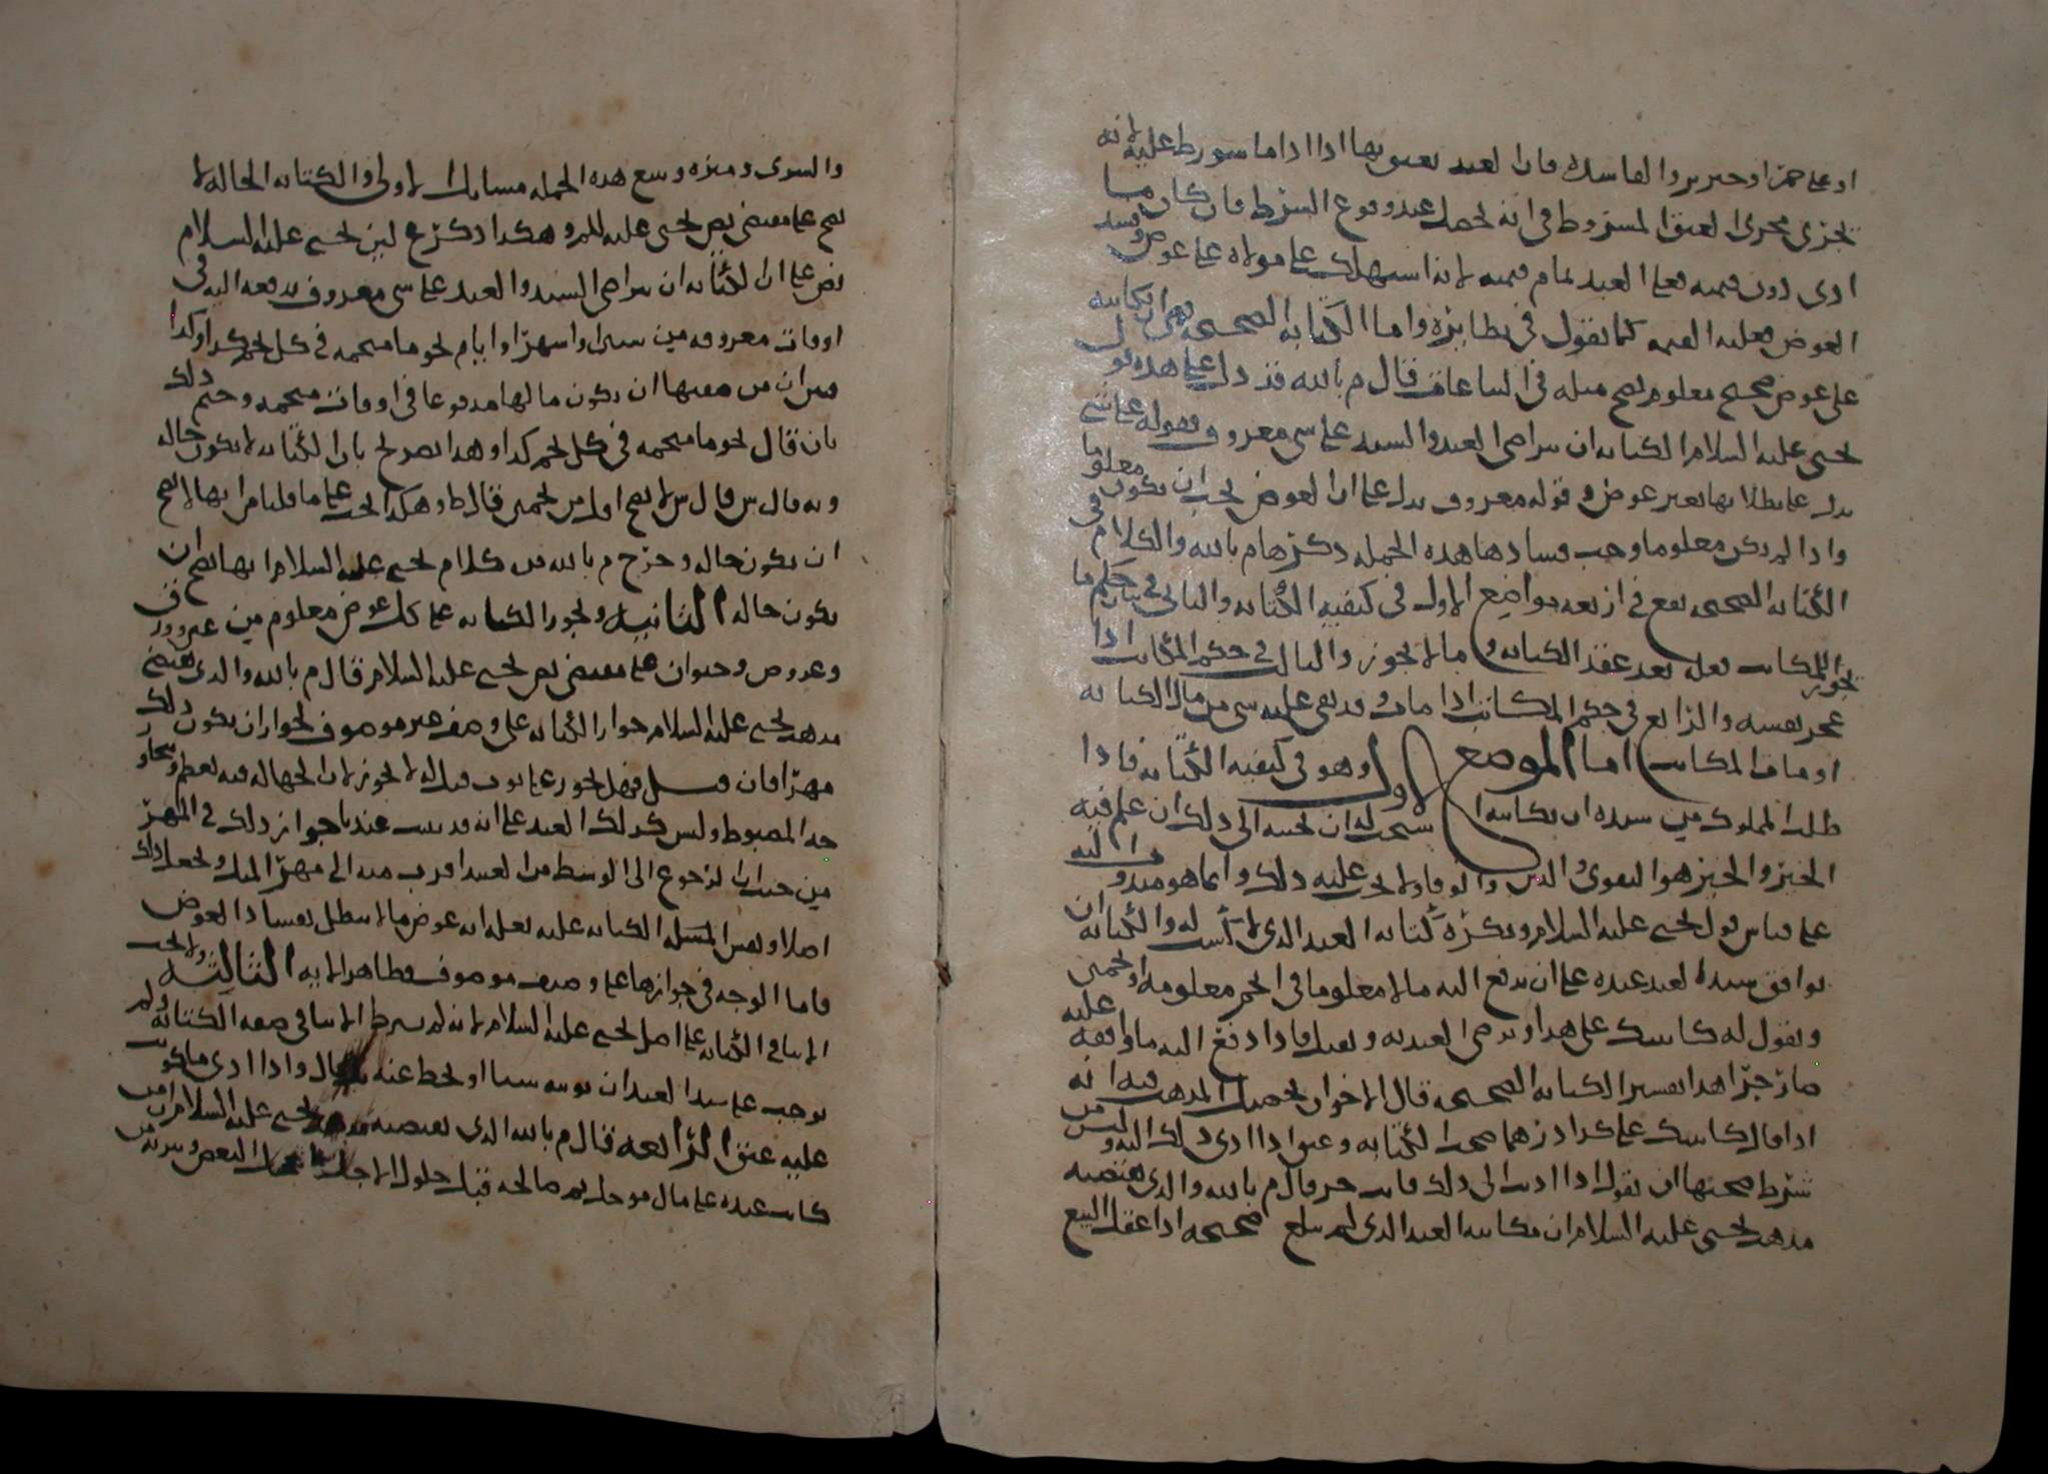 او على خمر او خنزير والفاسدة فان العبد يعتق بها اذا ادا ما شورط عليه لانه
تجري مجرى العتق المشروط في انه يحصل عند وقوع الشرط فان كان ما
ادى دون قيمته فعلى العبد تمام قيمته لانه استهلك على مولاه على عوض وفسد
العوض فعليه القيمة كما نقول في نظائره واما الكتابة الصحيحة فهي ان يكاتبه
على عوض صحيح معلوم يصح مثله في قال م بالله قد دل على هذه قول
يحيى عليه السلام الكتابة ان يتراضى العبد والسيد على شي معروف فقوله على شي
يدل على بطلانها بغير عوض وقوله معروف يدل على ان العوض يجب ان يكون معلوما
واذا لم يكن معلوما وجب فسادها هذه الجملة ذكرها م بالله والكلام في
الكتابة الصحيحة يقع في اربعة مواضع الاول في كيفية الكتابة والثاني في بيان حكم ما
يجوز للمكاتب فعله بعد عقد الكتابة وما لا يجوز والثالث في حكم المكاتب اذا
عجز نفسه والرابع في حكم المكاتب اذا مات وقد بقي عليه شي من مال الكتابة
او مات المكاتب اما الموضع الاول وهو في كيفية الكتابة فاذا
طلب المملوك من سيده ان يكاتبه استحب له ان يجيبه الى ذلك ان علم فيه
الخير والخير هو التقوى والدين والوفاء ولا يجب عليه ذلك وانما هو مندوب اليه
على قياس قول يحيى عليه السلام ويكره كتابة العبد الذي لا له والكتابة ان
يوافق سيد العبد عبده على ان يدفع اليه مالا معلوما في انجم معلومة او نجمين
ويقول له كاتبتك على هذا ويرضى العبد به ويقبل فاذا دفع اليه ما وافقه عليه
صار حرا هذا تفسير الكتابة الصحيحة قال الاخوان تحصيل المذهب فيه انه
اذا قال كاتبتك على كذا درهما صحت الكتابة وعتق اذا ادى ذلك اليه وليس من
شرط صحتها ان يقول اذا اديت الي ذلك فانت حر قال م بالله والذي يقتضيه
مذهب يحيى عليه السلام ان مكاتبة العبد الذي لم يبلغ صحيحة اذا عقل البيع
والشرى وميزه ويتبع هذه الجملة مسائل الاولى والكتابة الحالة لا
تصح على مقتضى نص يحيى عليه السلم وهكذا ذكر ع لان يحيى عليه السلام
نص على ان الكتابة ان يتراضى السيد والعبد على شي معروف يدفعه اليه في
اوقات معروفة من سنين او اشهر او ايام نجوما منجمة في كل نجم كذا وكذا
فبين ان من معناها ان يكون مالها مدفوعا في اوقات منجمة وحتم ذلك
بان قال نجوما منجمة في كل نجم كذا وهذا تصريح بان الكتابة لا تكون حالة
وبه قال ش قال ش لا تصح اقل من نجمين قال ط وهكذا يجب على ما قلنا من انها لا تصح
ان تكون حالة وخرج م بالله من كلام يحيى عليه السلام انها تصح ان
تكون حالة الثانية وتجوز الكتابة على كل عوض معلوم من عين وورق
وعروض وحيوان على مقتضى نص يحيى عليه السلام قال م بالله والذي يقتضي
مذهب يحيى عليه السلام جواز الكتابة على وصف غير موصوف لجواز ان يكون ذلك
مهرا فان قيل فهل تجوز على ثوب قيل له لا تجوز لان الجهالة فيه تعظم وتتجاوز
حد المضبوط وليس كذلك العبد على انه قد ثبت عندنا جواز ذلك في المهر
من حيث ان الرجوع الى الوسط من العبد اقرب منه الى مهر المثل ونجعل ذلك
اصلا ونقيس المسئلة الكتابة عليه بعلة انه عوض ما لا يبطل بفساد العوض
فاما الوجه في جوازها على وصيف موصوف فظاهر الاية الثالثة ولا يجب
الايتا في الكتابة على اصل يحيى عليه السلام لانه لم يشرط الايتا في صفة الكتابة ولم
يوجب على سيد العبد ان يوتيه شيا او يحط عنه بحال واذا ادى ما كوتب
عليه عتق الرابعة قال م بالله الذي يقتضيه مذهب يحيى عليه السلام ان من
كاتب عبده على مال موجل ثم صالحه قبل حلول الاجل على البعض